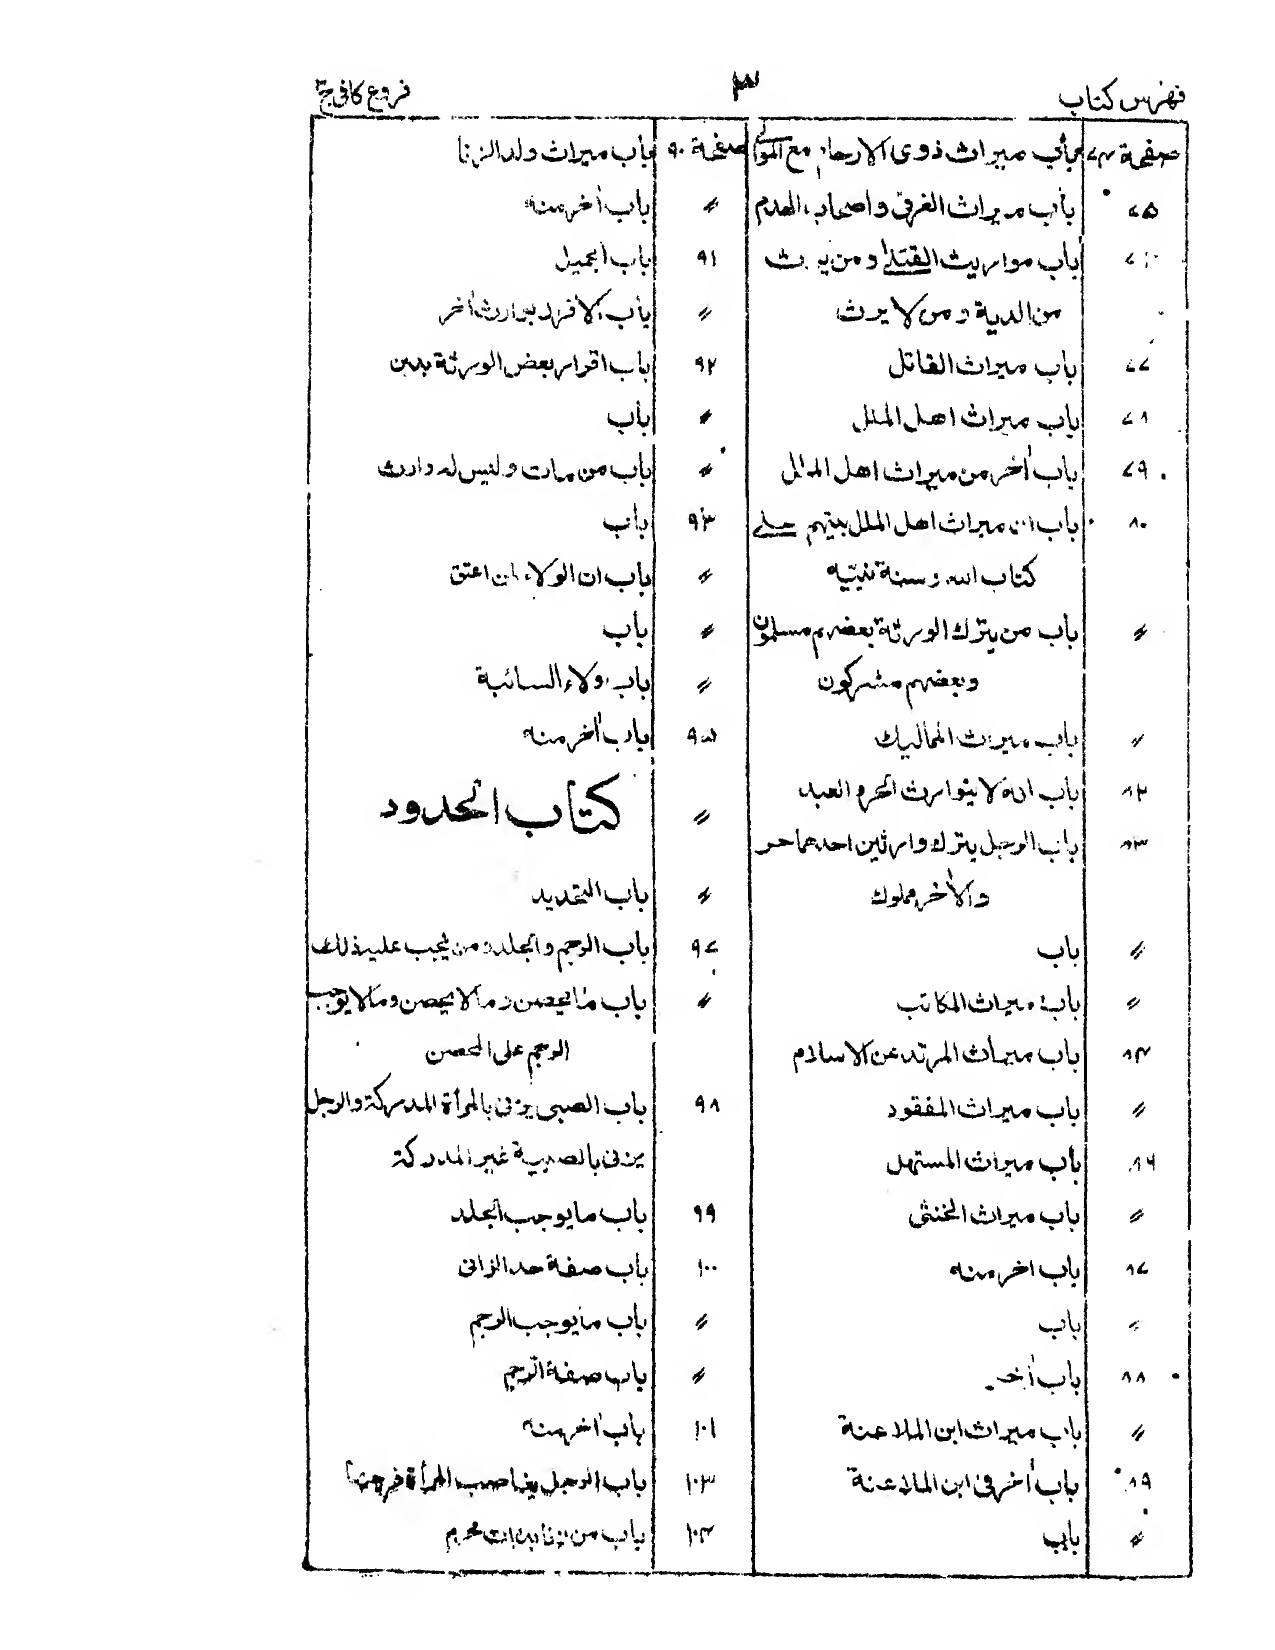 فهرس كتاب
٣
فروع كافى ج٣
صفحة ٧٤ باب ميراث ذوى الارحام مع الموالى
٧٥ باب ميراث الغرقى واصحاب الهدم
باب مواريث القتلى ومن يرث
من الدية ومن لا يرث
٧٧ باب ميراث القاتل
٧٨ باب ميراث اهل الملل
٧٩ باب أخر من ميراث اهل الملل
٨٠ باب ان ميراث اهل الملل بينهم على
كتاب الله وسنة نبيّه
〃 باب من يترك الورثة بعضهم مسلمون
وبعضهم مشركون
〃 باب ميراث المماليك
٨٢ باب انه لا يتوارث الحر والعبد
٨٣ باب الرجل يترك وارثين احدهما حر
والأخر مملوك
〃 باب
〃 باب ميراث المكاتب
٨٤ باب ميراث المرتد عن الاسلام
〃 باب ميراث المفقود
٨٦ باب ميراث المستهل
〃 باب ميراث الخنثى
٨٧ باب اخر منه
〃 باب
٨٨ باب أخر
〃 باب ميراث ابن الملاعنة
٨٩ باب أخر فى ابن الملاعنة
〃 باب
صفحة ٩٠ باب ميراث ولد الزنا
〃 باب أخر منه
٩١ باب الحميل
〃 باب الاقرار بوارث أخر
٩٢ باب اقرار بعض الورثة بدين
〃 باب
〃 باب من مات وليس له وارث
٩٣ باب
〃 باب ان الولاء لمن اعتق
〃 باب
〃 باب ولاء السائبة
٩٥ باب أخر منه
〃 كتاب الحدود
〃 باب التحديد
٩٧ باب الرجم والجلد ومن يجب عليه ذلك
〃 باب ما يحصن وما لا يحصن وما لا يوجب
الرجم على المحصن
٩٨ باب الصبى يزنى بالمرأة المدركة والرجل
يزنى بالصبية غير المدركة
٩٩ باب ما يوجب الجلد
١٠٠ باب صفة حد الزانى
〃 باب ما يوجب الرجم
〃 باب صفة الرجم
١٠١ باب أخر منه
١٠٣ باب الرجل يغاصب المرأة فرجها
١٠٤ باب من زنا بذات محرم